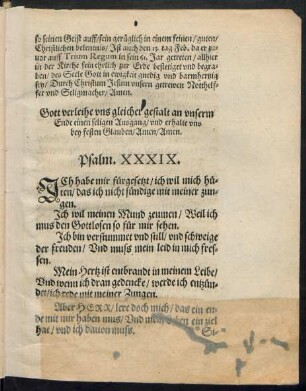 so seinen Geist auff/sein gerüglich in einem feinen/guten/
Christlichen bekentnis/Ist auch den 15. tag Feb. da er zu
uor auff Trium Regum in sein 61. Jar getreten/allhier
in der Kirche sein ehrlich zur Erde bestetiget vnd begra/
ben/des Seele Gott in ewigkeit gnedig vnd barmhertzig
sey/Durch Christum Jesum vnsern getrewen Nothelf-
fer vnd Seligmacher/Amen.
Gott verleihe vns gleicher gestalt an vnserm
Ende einen seligen Ausgang/vnd erhalte vns
bey festen Glauben/Amen/Amen.
Psalm. XXXIX.
ICh habe mir fürgesetzt/ich wil mich hü-
ten/das ich nicht sündige mit meiner zun-
gen.
Ich wil meinen Mund zeumen/Weil ich
mus den Gottlosen so für mir sehen.
Ich bin verstummet vnd still/vnd schweige
der freuden/Vnd muss mein leid in mich fres-
sen.
Mein Hertz ist entbrandt in meinem Leibe/
Vnd wenn ich dran gedencke/werde ich entzün-
det/ich rede mit meiner Zungen.
Aber HERR/lere doch mich/das ein en-
de mit mir haben muss/Vnd mein leben ein ziel
hat/vnd ich dauon muss.
Si-